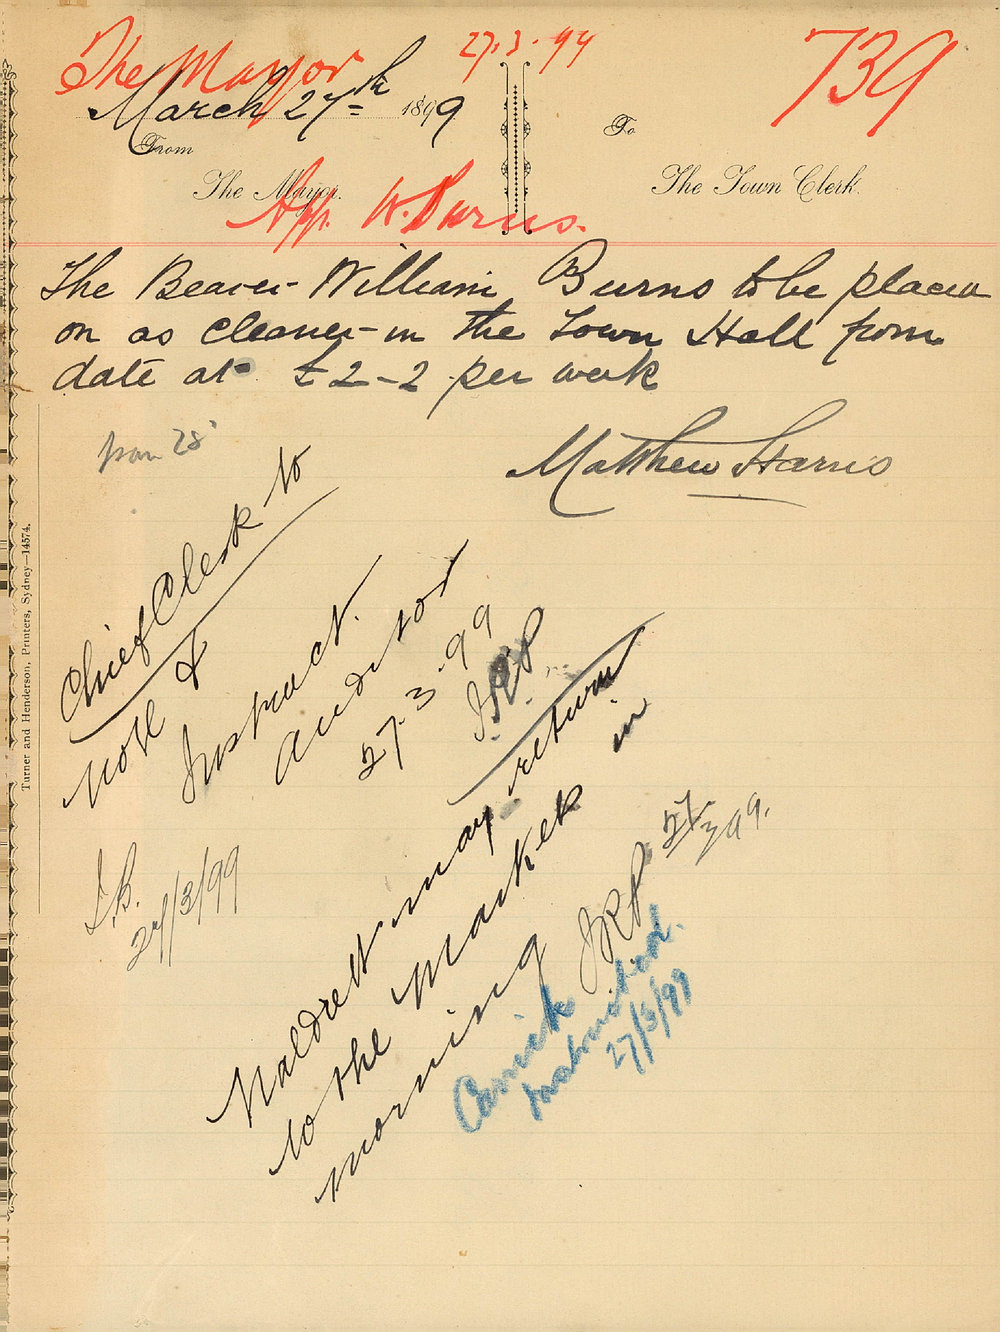 The Mayor
27.3.99
739
March 27th 1899
From
To
The Mayor.
The Town Clerk.
App. W. Burns.
The Bearer William Burns to be placed
on as cleaner in the Town Hall from
date at £2-2 per week
Matthew Harris
from 28
Chief Clerk to
note &
Instruct.
auditor
27.3.99
J.B.
27/3/99
may return
to the Market in
morning
27/3/99.
Instructed.
27/3/99
Turner and Henderson, Printers, Sydney—14574.